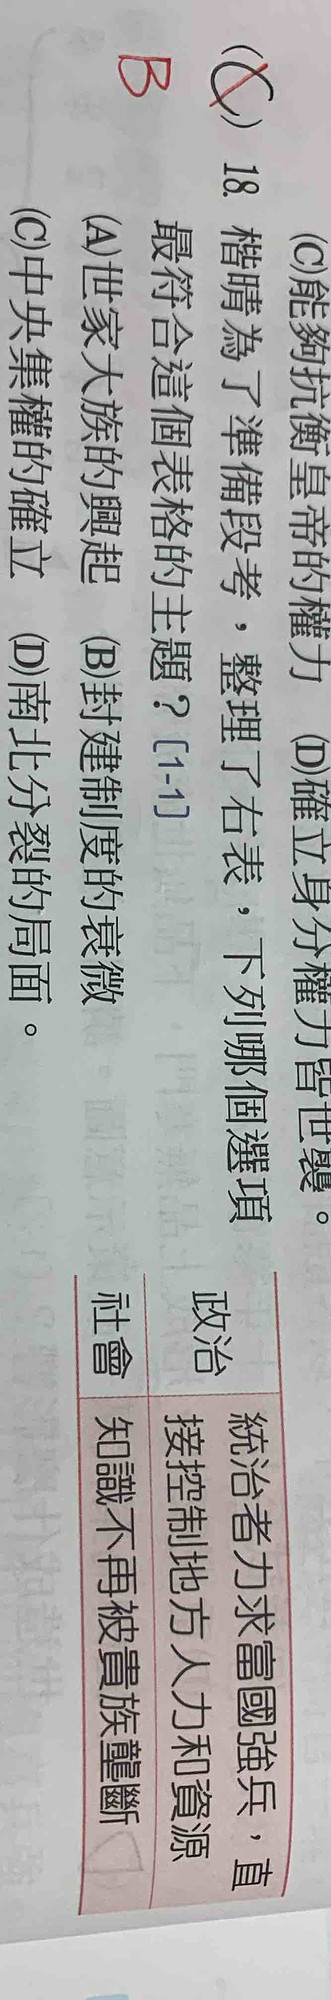 (C)能夠抗衡皇帝的權力 (D)確立身分權力皆世襲。
(C) 18. 楷晴為了準備段考，整理了右表，下列哪個選項
最符合這個表格的主題？〔1-1〕
B
(A)世家大族的興起 (B)封建制度的衰微
(C)中央集權的確立 (D)南北分裂的局面。
政治 統治者力求富國強兵，直
接控制地方人力和資源
社會 知識不再被貴族壟斷